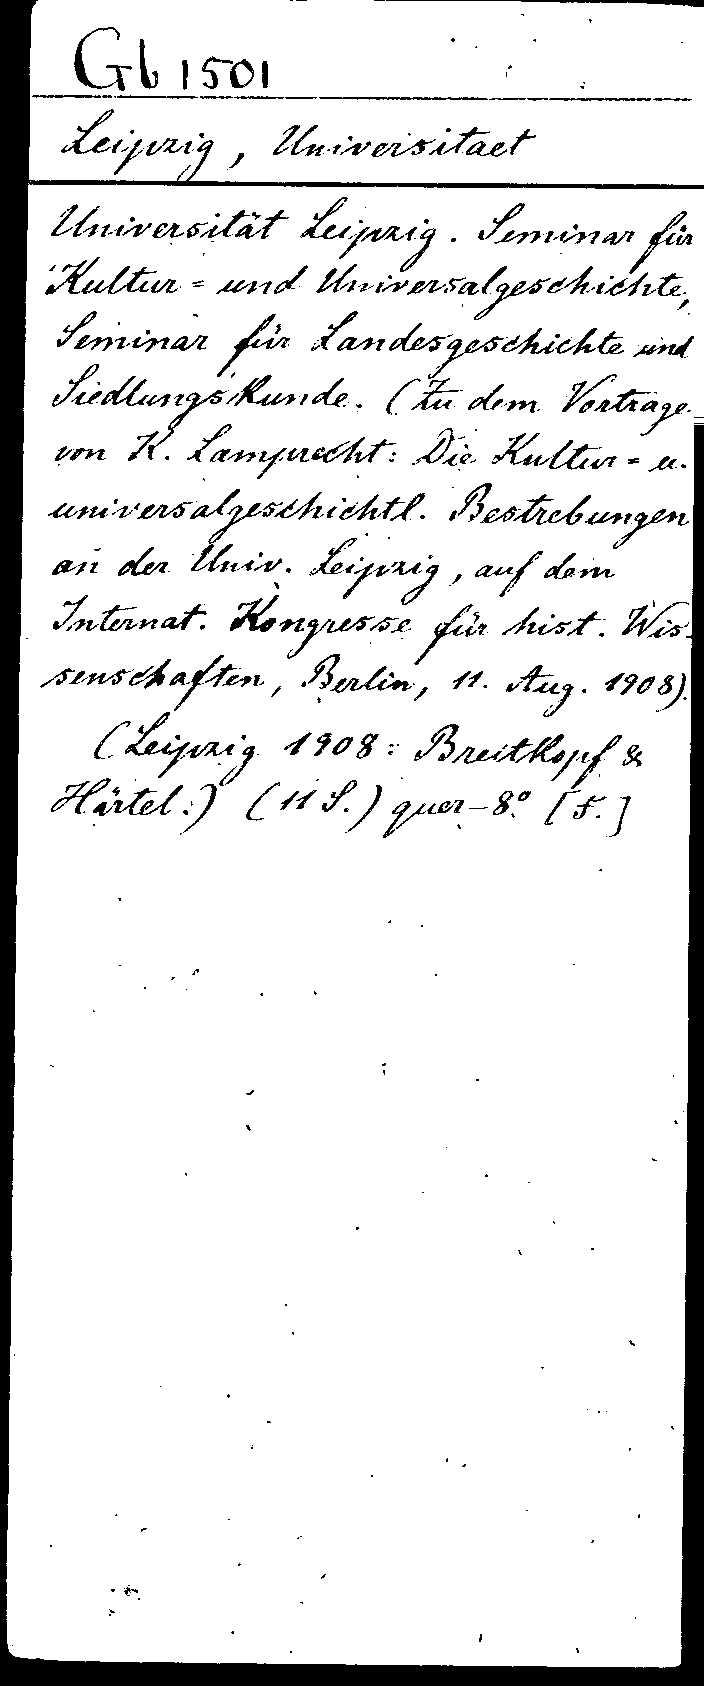 Gb 1501
Leipzig, Universitaet
Universität Leipzig. Seminar für
Kultur= und Universalgeschichte,
Seminar für Landesgeschichte und
Siedlungskunde. (Zu dem Vortrage
von K. Lamprecht: Die Kultur= u.
universalgeschichtl. Bestrebungen
an der Univ. Leipzig, auf dem
Internat. Kongresse für hist. Wis-
senschaften, Berlin, 11. Aug. 1908).
(Leipzig 1908: Breitkopf &
Härtel.) (11 S.) quer-8° [5.]